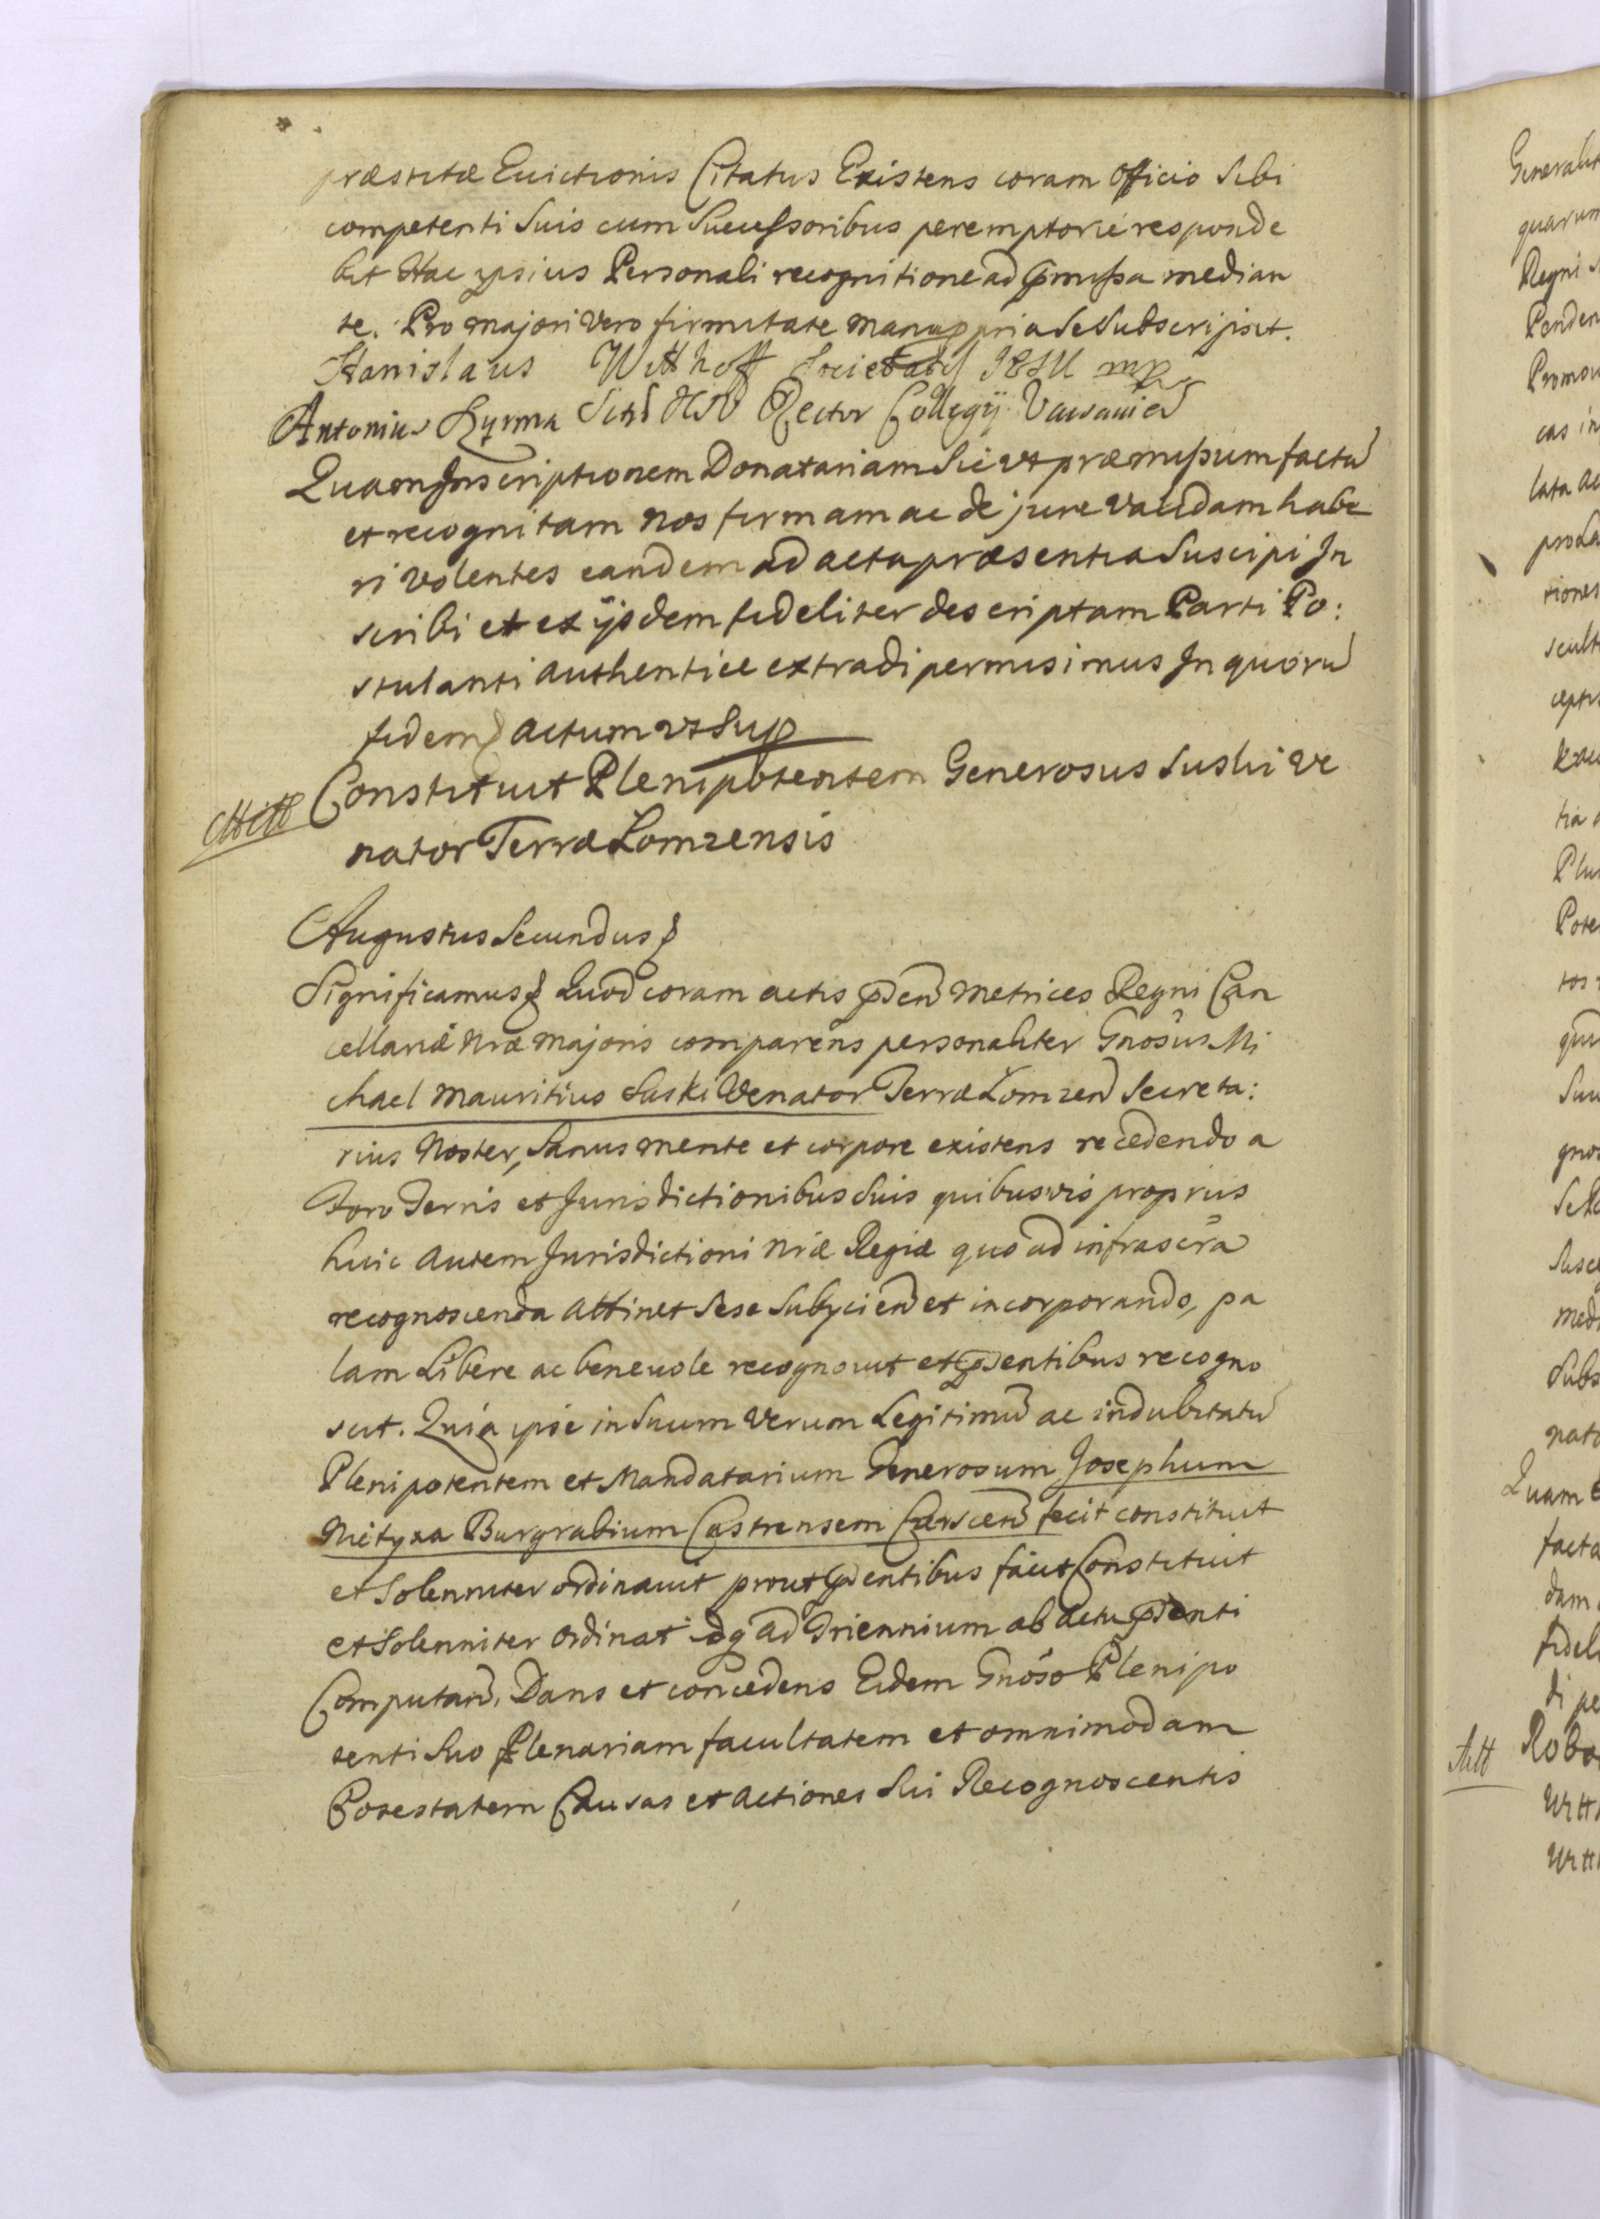 præstitæ Euictionis Citatus Existens coram Officio Sibi
competenti Suis cum Sucessoribus peremptorie responde
bit Hac ipsius Personali recognitione ad præmissa median
te. Pro majori Vero firmitate manu ppria Se Subscripsit.
Stanislaus Witthoff Societatis JESU mp
Antonius Rector Collegij Varsavien
Quam Inscriptionem Donatariam Sic vt præmissum factu
et recognitam Nos firmam ac de jure Validam habe
ri Volentes eandem ad acta præsentia Suscipi In
scribi et ex ijsdem fideliter descriptam Parti Po:
stulanti authentice extradi permisimus In quoru
fidem actum vt Sup
Constituit Plenipotentem Generosus Suski Ve
nator Terræ Lomzensis
Augustus Secundus
Significamus Quod coram actis pñden Metrices Regni Can
cellariæ Nræ Majoris comparens personaliter Gnosus Mi
chael Mauritius Suski Venator Terræ Lomzen Secreta:
rius Noster, Sanus mente et corpore existens recedendo a
Foro Terris et Jurisdictionibus Suis quibusvis proprus
huic autem Jurisdictioni Nræ Regiæ quo ad infrascra
recognoscenda attinet Sese Subycien et incorporando, pa
lam Libere ac beneuole recognouit et pñsentibus recogno
scit. Quia ipse in Suum Verum Legitimu ac indubitatu
Plenipotentem et Mandatarium Generosum Josephum
Nietyxa Burgrabium Castrensem Cerscen fecit constituit
et Solenniter ordinauit prout pñsentibus facit Constituit
et Solenniter Ordinat idq ad Triennium ab actu pñsenti
Computan, Dans et concedens Eidem Gnoso Plenipo
tenti Suo Plenariam facultatem et omnimodam
Potestatem Causas et actiones Sui Recognoscentis